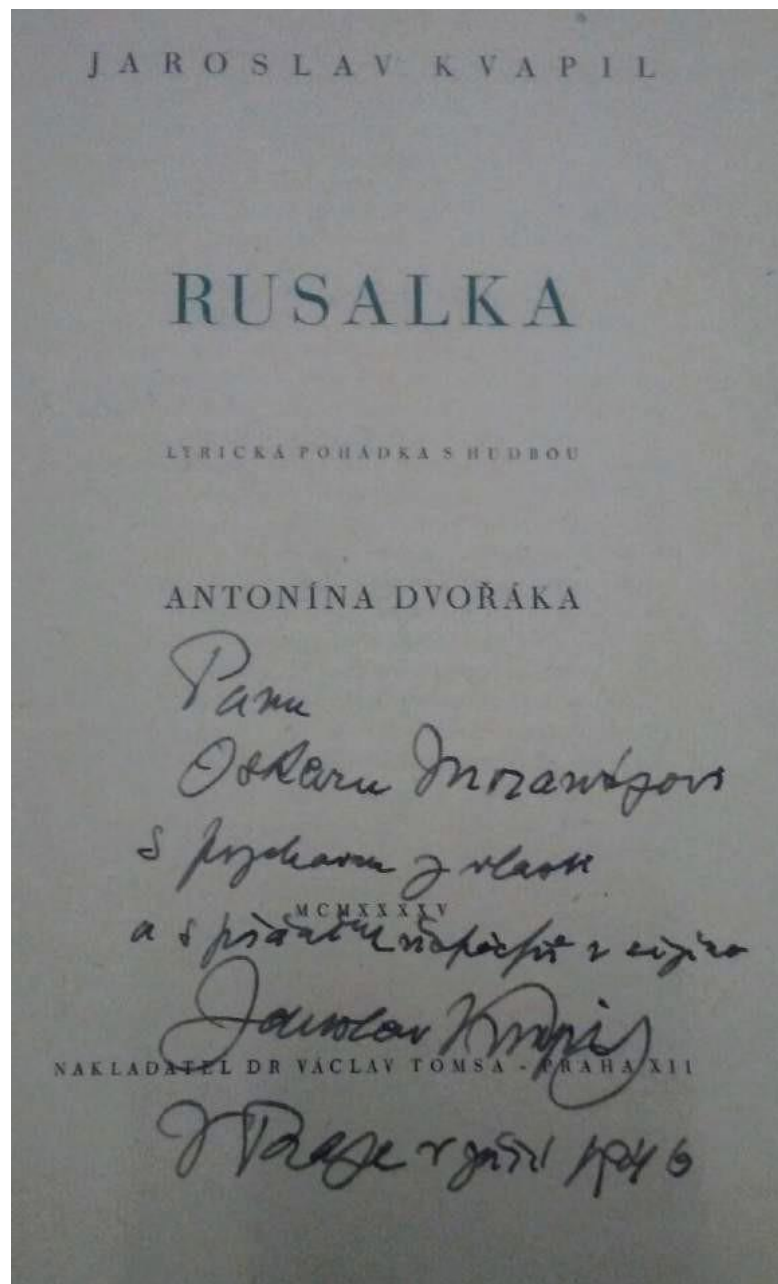 JAROSLAV KVAPIL
RUSALKA
LYRICKÁ POHÁDKA S HUDBOU
ANTONÍNA DVOŘÁKA
Panu
Oskaru Morawetzovi
s pozdravem z vlasti
MCMXXXXV
a s přáním úspěchů v cizině
Jaroslav Kvapil
NAKLADATEL DR VÁCLAV TOMSA - PRAHA XII
V Praze v září 1946